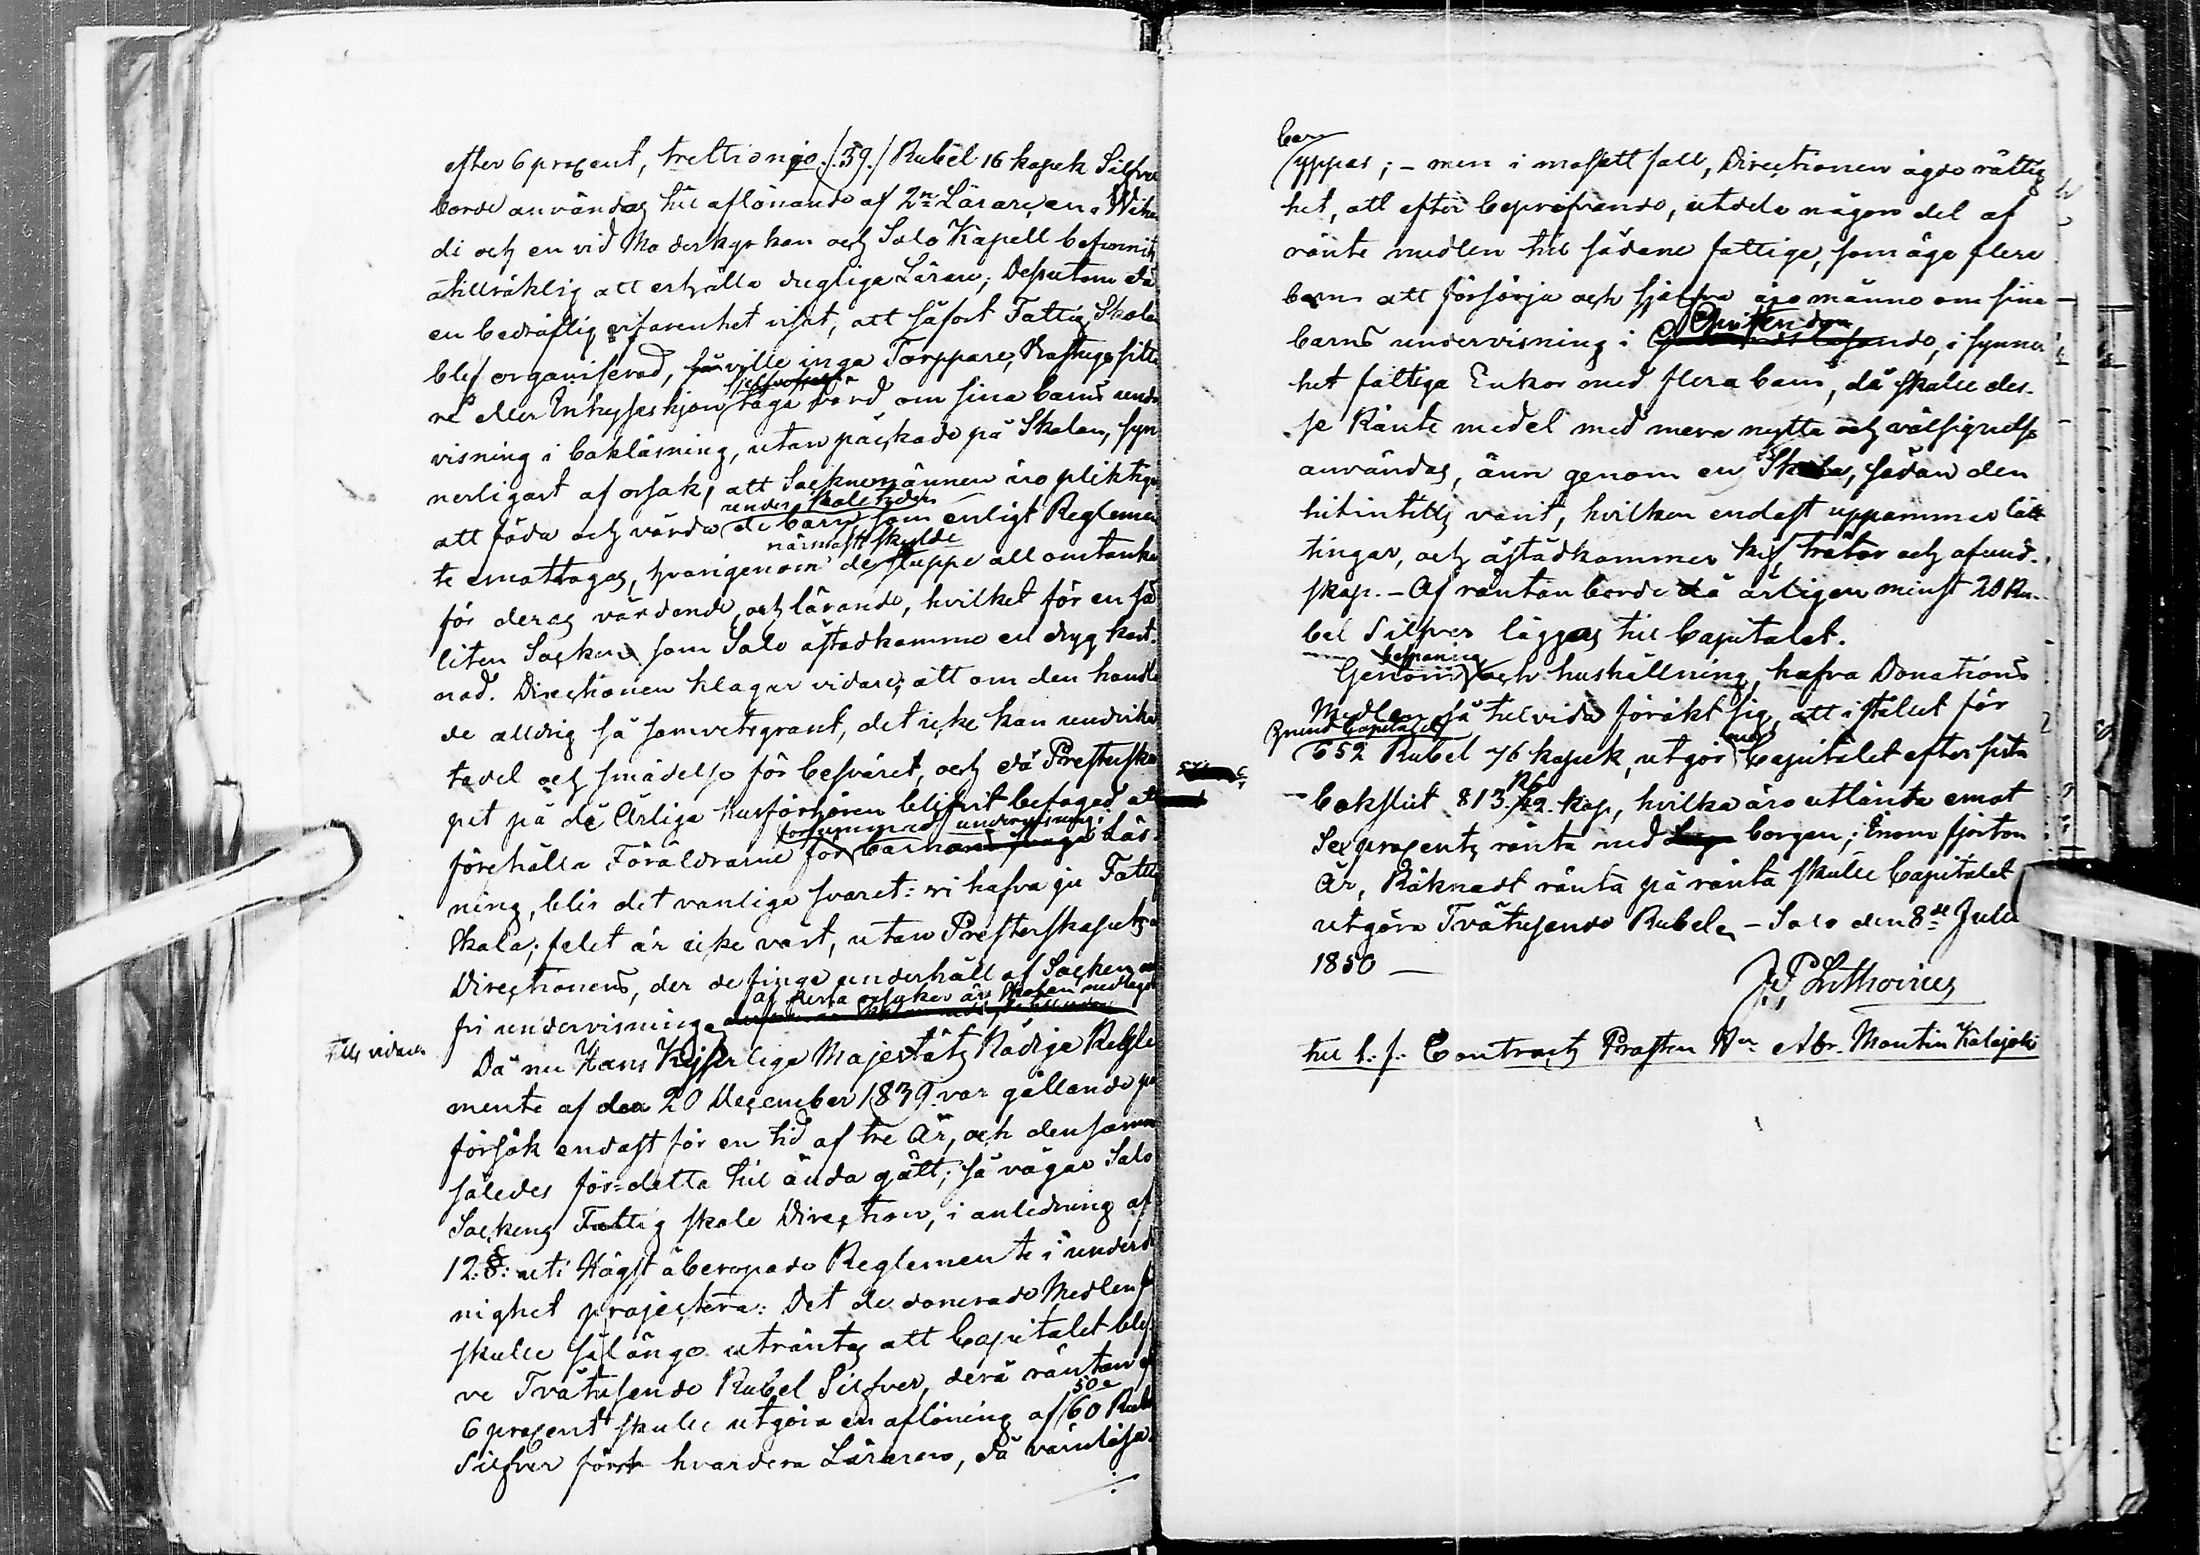 efter 6 procent, trettionjo /:39./ Rubel 16 kopek Silfver
borde användas till aflönande af 2ne Lärare, en i
di och en vid Moderkyrkan och Salo Kapell befunnits
otillräklig att erhålla dugliga Lärare; Dessutom då
en bedröflig erfarenhet visat, att såfort Fattig Skolan
blef organiserad, ville inga Torppare, Backstugo sitta
re eller Inhyseshjon taga vård om sina barns under
visning i bokläsning, utan påskade på Skolan, syn
nerligast af orsak, att Socknemännen äro pliktige
under skoletiden
att föda och vårda de barn, som enligt Reglemen
närmast skylde
te emottagas, hvarigenom de sluppe all omtanke
för deras vårdande och lärande, hvilket för en så
liten Socken som Salo åstadkomme en dryg kost-
nad. Directionen klagar vidare, att om den handla
de alldrig så samvetsgrant, det icke kan undvika
tadel och smädelse för besväret, och då Presterska
pet på de Årliga husförhören blifvit befogad att
försummad undervisning
förehålla Föräldrarne för barnens Läs-
ning, blir det vanliga svaret: vi hafva ju Fattig
Skola; felet är icke vårt, utan Presterskapets o
Directionens, der de finge underhåll af Socken o
af desse orsaker är Skolan nedlagd
fri undervisning.
tills vidare
Då nu Hans Kejserliga Majestäts Nådiga Regle
mente af den 20 December 1839 var gällande på
försök endast för en tid af tre År, och densamma
således för detta till ända gått; så vågar Salo
Sockens Fattig skole Direction, i anledning af
12:§: uti Högst åberopade Reglemente i underdå
nighet projectera: Det de donerade Medlen
skulle så länge uträntas att Capitalet blef
ve Tvåtusende Rubel Silfver, derå räntan af
50 a
6 procent skulle utgöra en aflöning af 60 Rubel
Silfver för hvardera Läraren, då värnlösa
bar
yppas; – men i motsatt fall, Directionen ägde rättig
het, att efter bepröfvande, utdela någon del af
ränte medlen till sådane fattige, som äga flera
barn att försörja och sjelfva äro männe om sina
Christendom
barns undervisning i, i synner
het fattiga Enkor med flera barn, då skulle des-
se Ränte medel med mera nytta och välsignelse
användas, änn genom en Skola, sådan den
hitintills varit, hvilken endast uppammar lätt
tingar, och åstadkommer kif, träter och afund-
skap. – Af räntan borde då årligen minst 20 Ru-
bel Silfver läggas till Capitalet.
besparing
Genom och hushållning, hafva Donations
Medlen så till vida förökt sig, att istället för
Grund Capitalet
552 Rubel 76 kopek, utgör nu Capitalet efter sista
Rbl
bokslut 813. 42. kop, hvilka äro utlånta emot
Sex procents ränta med borgen; Inom fjorton
År, Räknadt ränta på ränta skulle Capitalet
utgöra Tvåtusende Rubel. – Salo den 8de Julii
1850 –
J, P, Lithovius
till l. f. Contracts Prosten Hr Abr. Montin Kalajoki